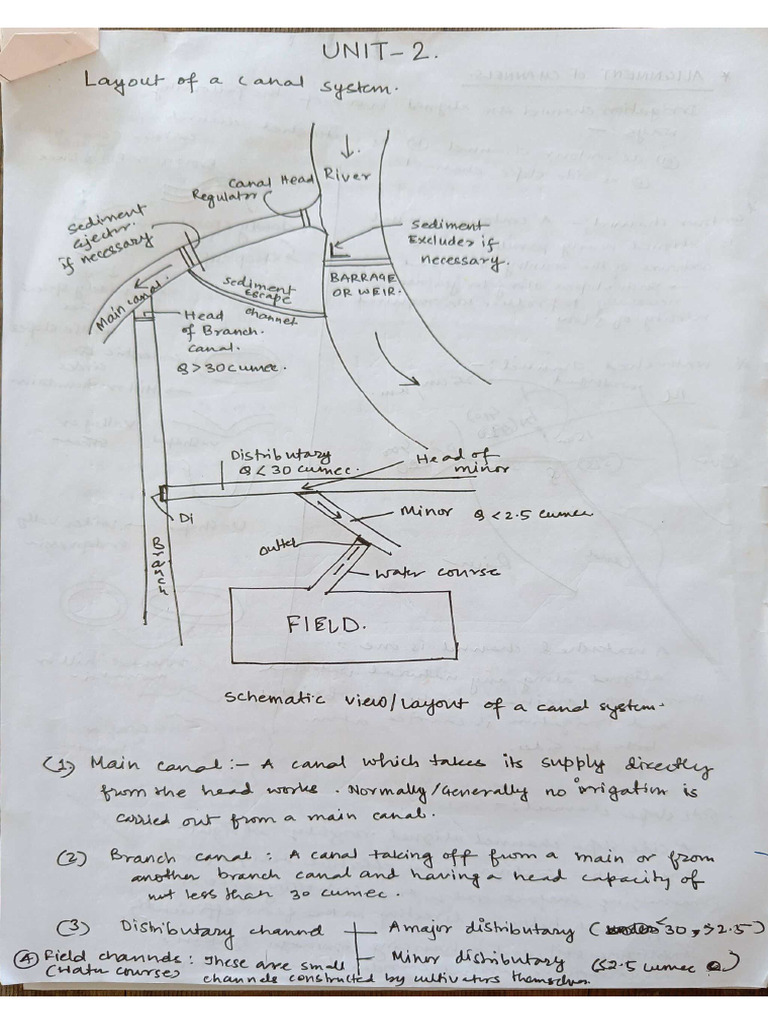 UNIT-2.
Layout of a canal system.
River
Canal Head
Regulator
Sediment
Ejector.
if necessary
Sediment
Excluder if
necessary.
BARRAGE
OR WEIR.
Sediment
Escape
channel
Main canal.
Head
of Branch.
canal.
Q > 30 cumec.
Distributary
Q < 30 cumec.
Head of
minor
Di
Minor Q < 2.5 cumec
outlet
Branch
water course
FIELD.
Schematic view/layout of a canal system.
(1) Main canal :- A canal which takes its supply directly
from the head works. Normally/Generally no irrigation is
carried out from a main canal.
(2) Branch canal : A canal taking off from a main or from
another branch canal and having a head capacity of
not less than 30 cumec.
(3) Distributary channel A major distributary (< 30, > 2.5)
Minor distributary (≤ 2.5 cumec)
(4) Field channels : These are small
(Water course) channels constructed by cultivators themselves.